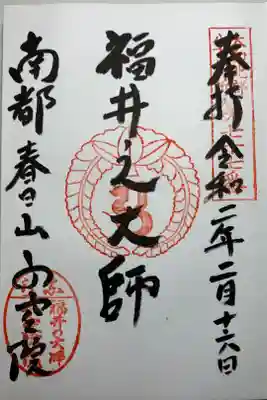 奉拝 令和二年二月十六日
福井之大師
南都 春日山
福井の大師